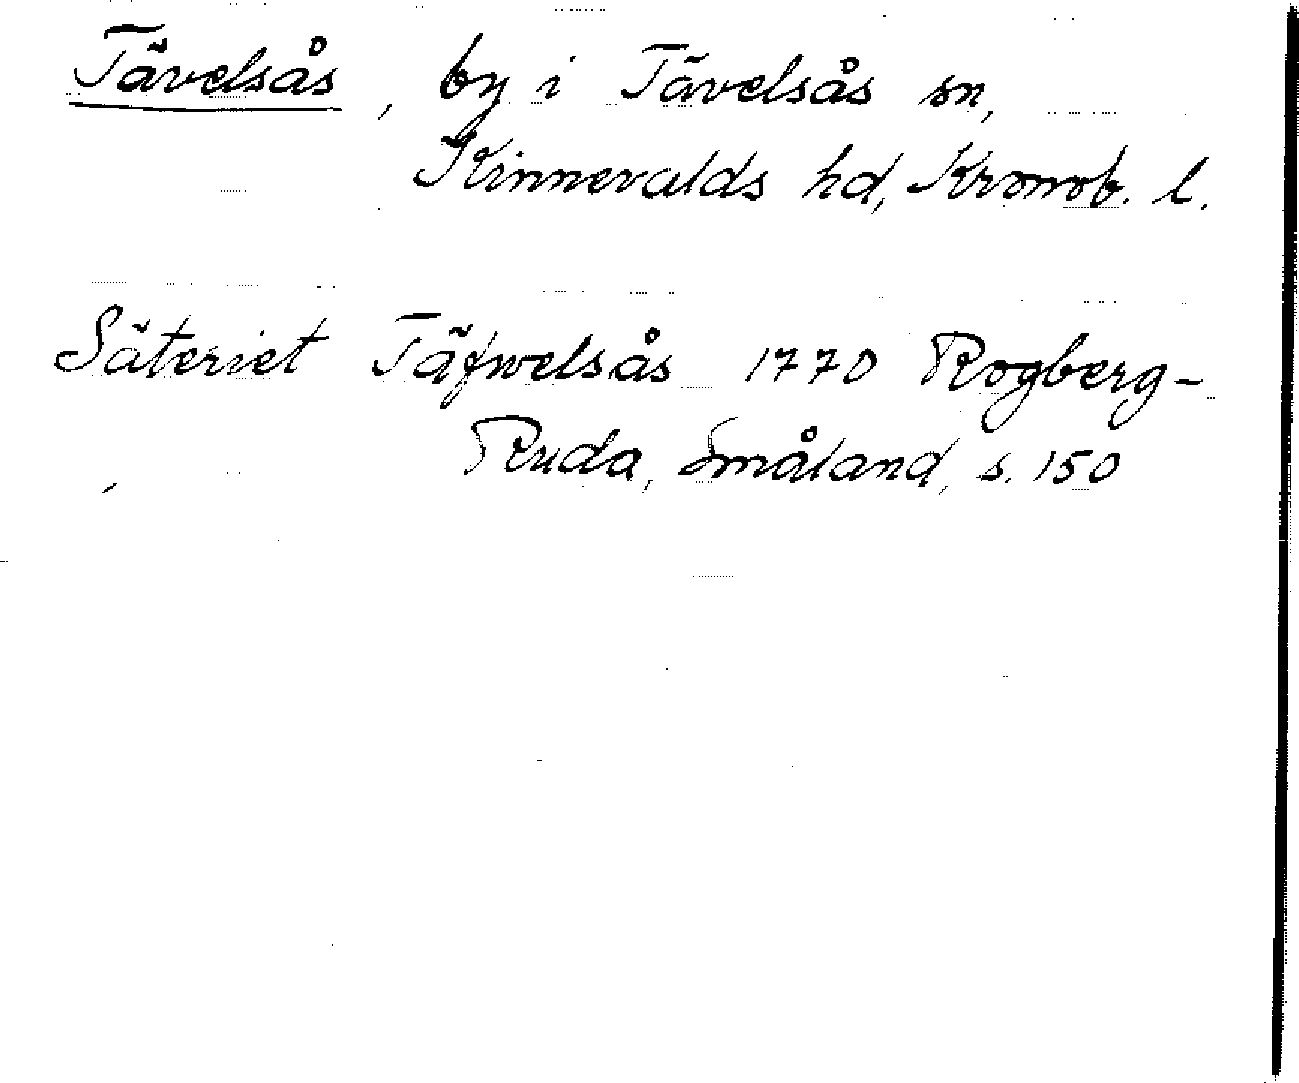 Tävelsås, by i Tävelsås sn,
Kinnevalds hd, Kronob. l.
Säteriet Täfwelsås 1770 Rogberg-
Ruda, Småland, s. 150